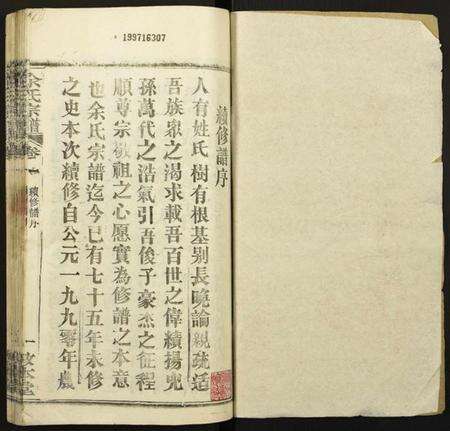 199716307
續修譜序
人有姓氏樹有根基别長曉論親疏适
吾族衆之渴求載吾百世之偉績揚兜
孫萬代之浩氣引吾後子豪杰之征程
順尊宗敬祖之心愿實為修譜之本意
也余氏宗譜迄今已有七十五年未修
之史本次續修自公元一九九零年農
余氏宗譜
卷一
續修譜序
一